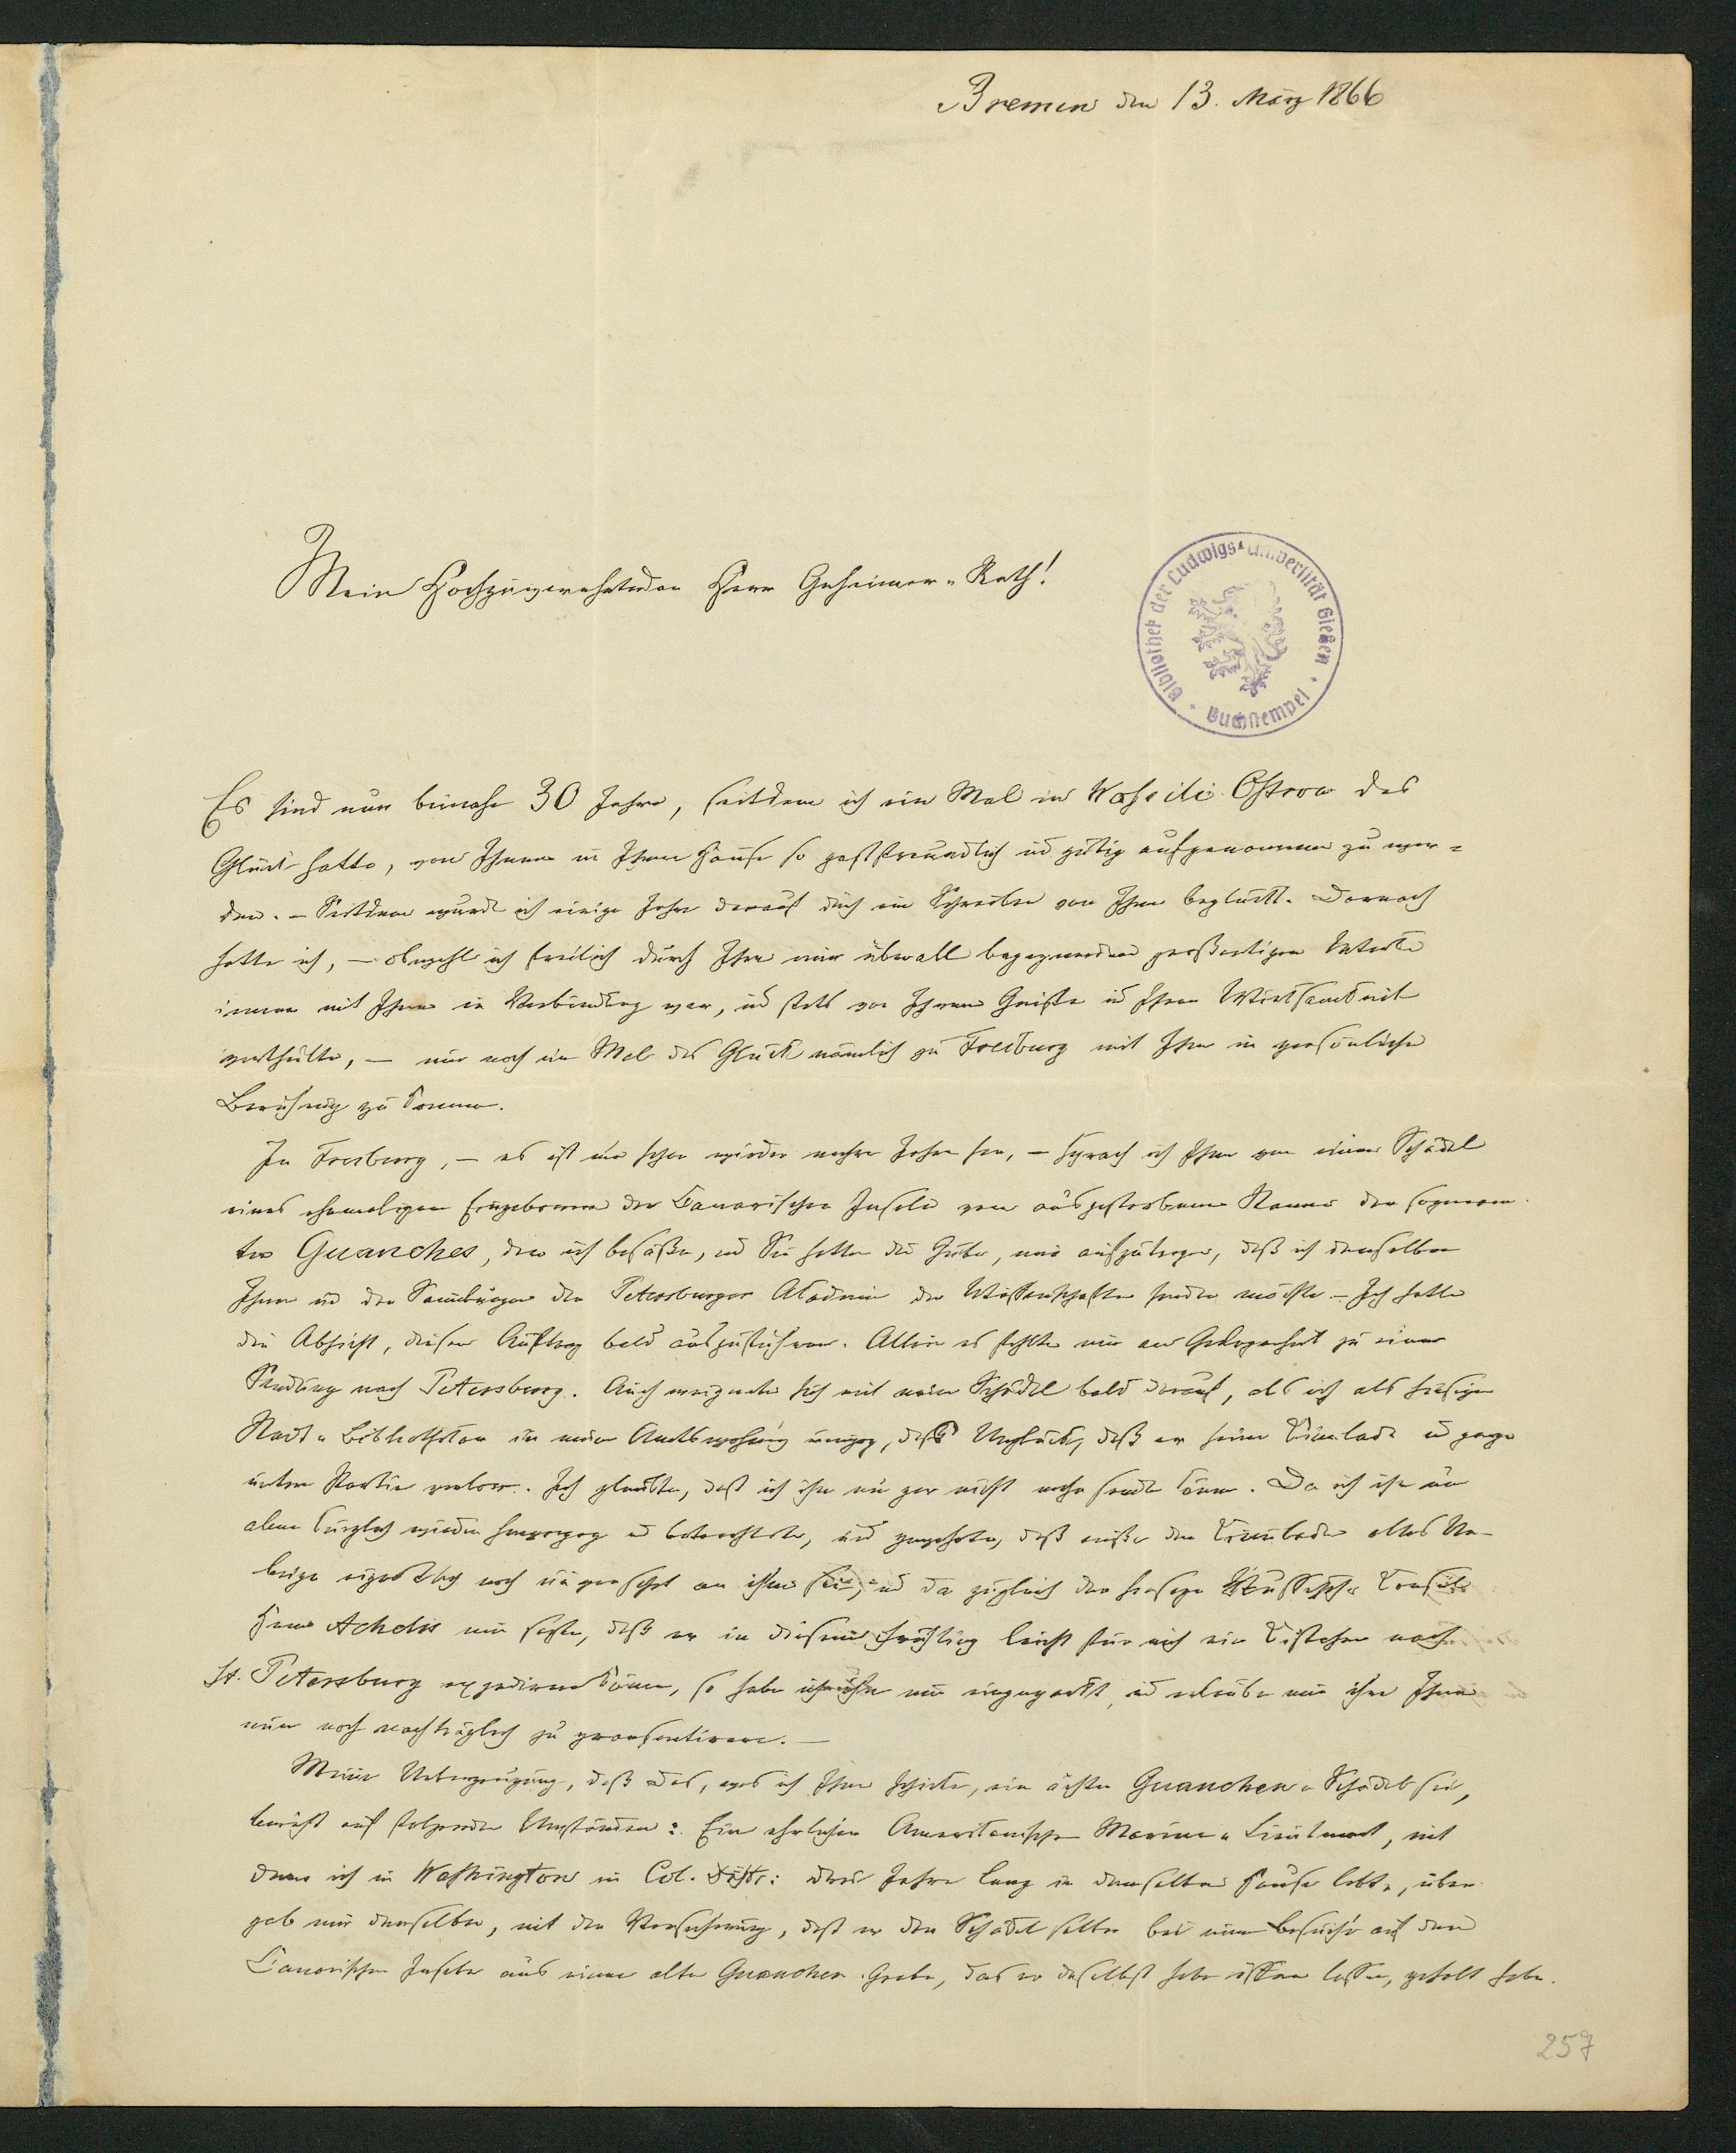 Bremen den 13. März 1866
Mein Hochzuverehrender Herr Geheimer-Rath!
Bibliothek der Ludwigs-Universität Gießen · Buchstempel ·
Es sind nun beinahe 30 Jahre, seitdem ich ein Mal in Wassili Ostrow das
Glück hatte, von Ihnen in Ihrem Hause so gastfreundlich und gütig aufgenommen zu wer-
den. – Seitdem wurde ich einige Jahre darauf durch ein Schreiben von Ihnen beglückt. Darnach
hatte ich, – obwohl ich freilich durch Ihre mir überall begegnenden großartigen
immer mit Ihnen in Verbindung war, und stets von Ihrem Geiste und Ihrer Wirksamkeit
– nur noch ein Mal das Glück nämlich zu Freiburg mit Ihnen in persönliche
Berührung zu kommen.
In Freiburg, – es ist nun schon wieder mehre Jahre her, – sprach ich Ihnen von einem Schädel
eines ehemaligen Eingebornen der Canarischen Inseln vom ausgestorbenen Stamme der sogenann-
ten Guanches, den ich besäße, und Sie hatten die Güte, mir aufzutragen, daß ich denselben
Ihnen und den Sammlungen der Petersburger Akademie der Wissenschaften senden möchte. – Ich hatte
die Absicht, diesen Auftrag bald auszuführen. Allein es fehlte mir an Gelegenheit zu einer
Sendung nach Petersburg. Auch ereignete sich mit meinem Schädel bald darauf, als ich als hiesiger
Stadt-Bibliothekar in meine Amtswohnung umzog, das Unglück, daß er seine Kinnlade und ganze
untere Partie verlor. Ich glaubte, daß ich ihn nun gar nicht mehr senden könne. Da ich ihn nun
aber kürzlich wieder hervorzog und betrachtete, und gewahrte, daß außer der Kinnlade alles Ue-
brige eigentlich noch unversehrt an ihm sei, und da zugleich der hiesige Russische Consul
Herr Achelis mir sagte, daß er in diesem Frühling leicht für mich ein Kistchen nach
St. Petersburg expediren könne, so habe ich ihn nun eingepackt, und erlaube mir ihn Ihnen
nun noch nachträglich zu praesentiren. –
Meine Ueberzeugung, daß das, was ich Ihnen schicke, ein ächter Guanchen-Schädel sei,
beruht auf folgenden Umständen: Ein ehrlicher Amerikanischer Marine-Lieutenant, mit
dem ich in Washington in Col. Distr: drei Jahre lang in demselben Hause lebte, über-
gab mir denselben, mit der Versicherung, daß er den Schädel selber bei einem Besuche auf den
Canarischen Inseln aus einem alten Guanchen-Grabe, das er daselbst habe öffnen lassen, geholt habe.
257